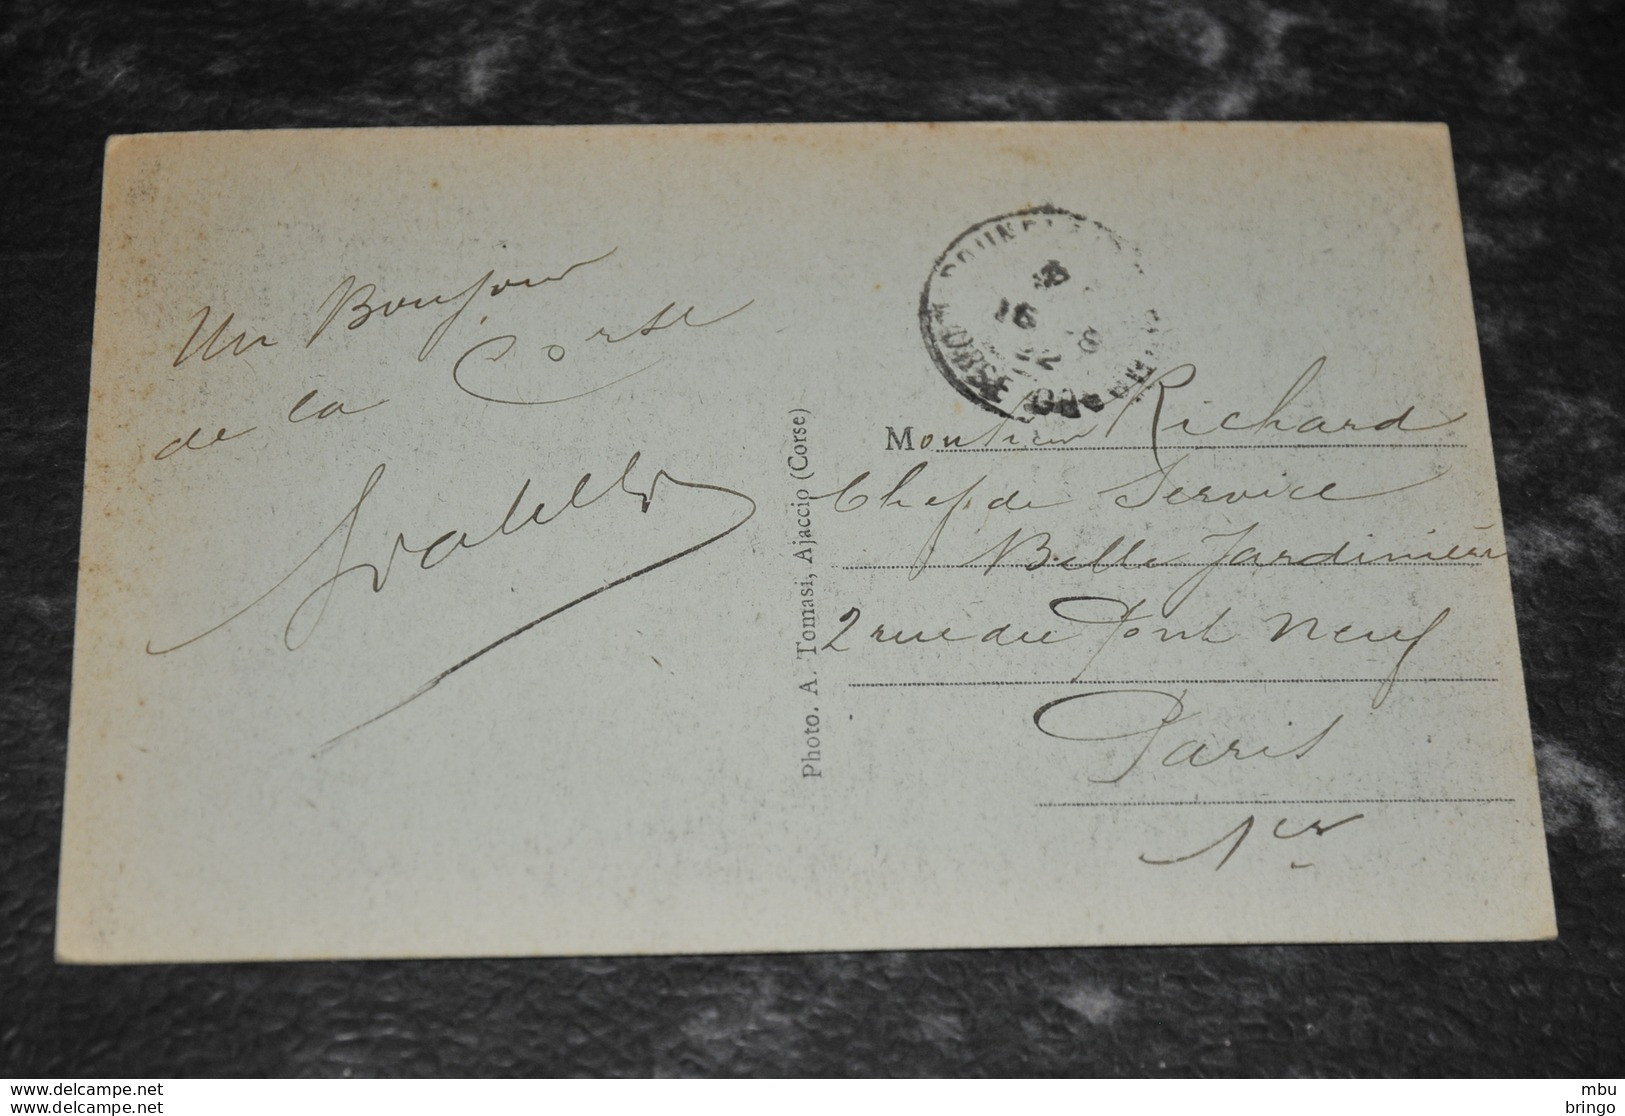 Un Bonjour
de la Corse
Photo. A. Tomasi, Ajaccio (Corse)
16 8
22
CORSE
Monsieur Richard
Chef de Service
Belle Jardinière
2 rue du Pont Neuf
Paris
1er
www.delcampe.net
www.delcampe.net
mbu
bringo